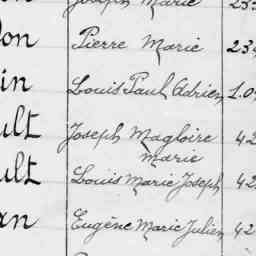 Joseph Marie 23
on Pierre Marie 234
in Louis Paul Adrien 1.0
ult Joseph Magloire 42
Marie
ult Louis Marie Joseph 42
an Eugène Marie Julien 42